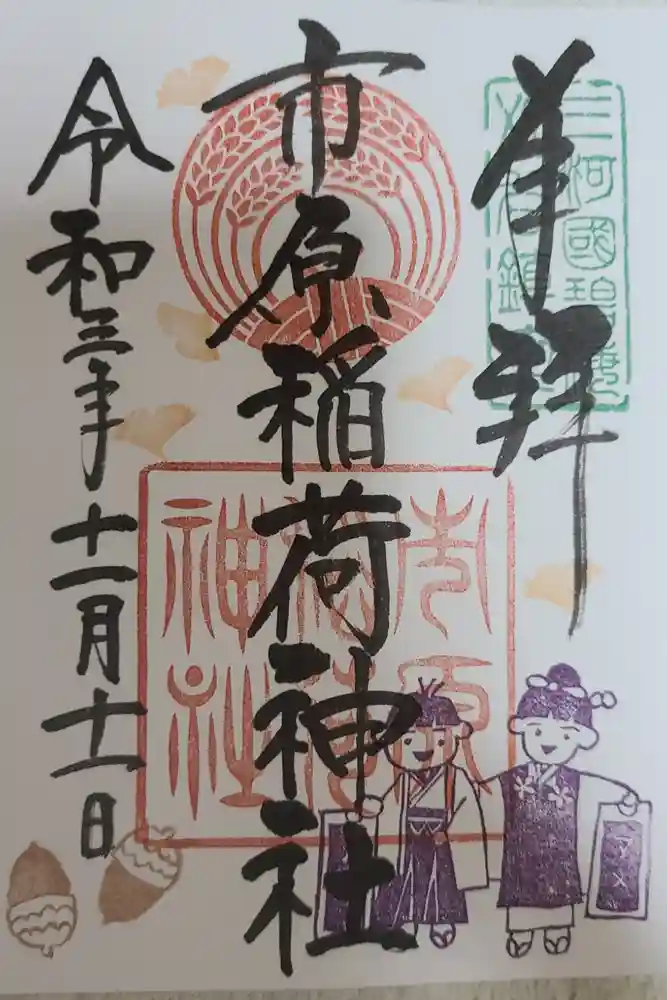 奉拝
三河國碧海
市原稲荷神社
市原
稲荷
神社
令和三年十一月十一日
アメ